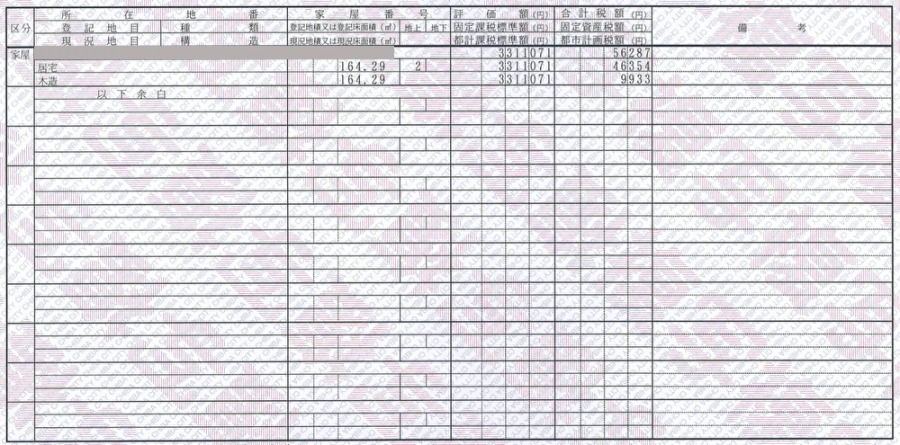 所 在 地 番 家 屋 番 号 評 価 額 (円) 合 計 税 額 (円)
区分 登 記 地 目 種 類 登記地積又は登記床面積(㎡) 地上 地下 固定課税標準額(円) 固定資産税額(円) 備 考
現 況 地 目 構 造 現況地積又は現況床面積(㎡) 都計課税標準額(円) 都市計画税額(円)
家屋 3311071 56287
居宅 164.29 2 3311071 46354
木造 164.29 3311071 9933
以 下 余 白